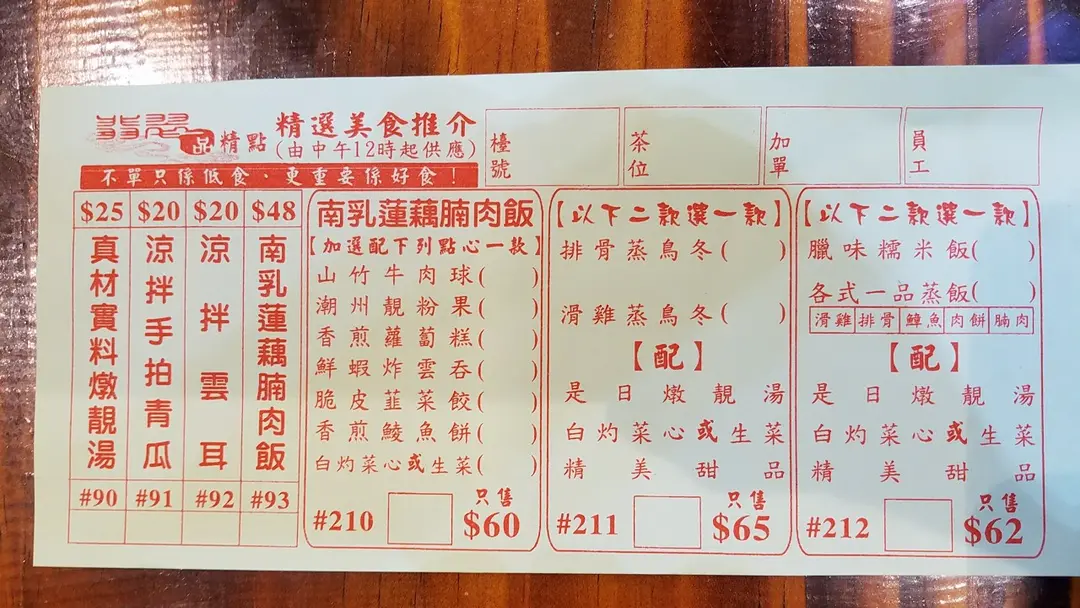 翡翠
品 精點
精選美食推介
(由中午12時起供應)
不單只係低食、更重要係好食！
檯號
茶位
加單
員工
$25
真材實料燉靚湯
#90
$20
涼拌手拍青瓜
#91
$20
涼拌雲耳
#92
$48
南乳蓮藕腩肉飯
#93
南乳蓮藕腩肉飯
【加選配下列點心一款】
山竹牛肉球( )
潮州靚粉果( )
香煎蘿蔔糕( )
鮮蝦炸雲吞( )
脆皮韮菜餃( )
香煎鯪魚餅( )
白灼菜心或生菜( )
#210
只售
$60
【以下二款選一款】
排骨蒸鳥冬( )
滑雞蒸鳥冬( )
【配】
是日燉靚湯
白灼菜心或生菜
精美甜品
#211
只售
$65
【以下二款選一款】
臘味糯米飯( )
各式一品蒸飯( )
滑雞 排骨 鱆魚 肉餅 腩肉
【配】
是日燉靚湯
白灼菜心或生菜
精美甜品
#212
只售
$62